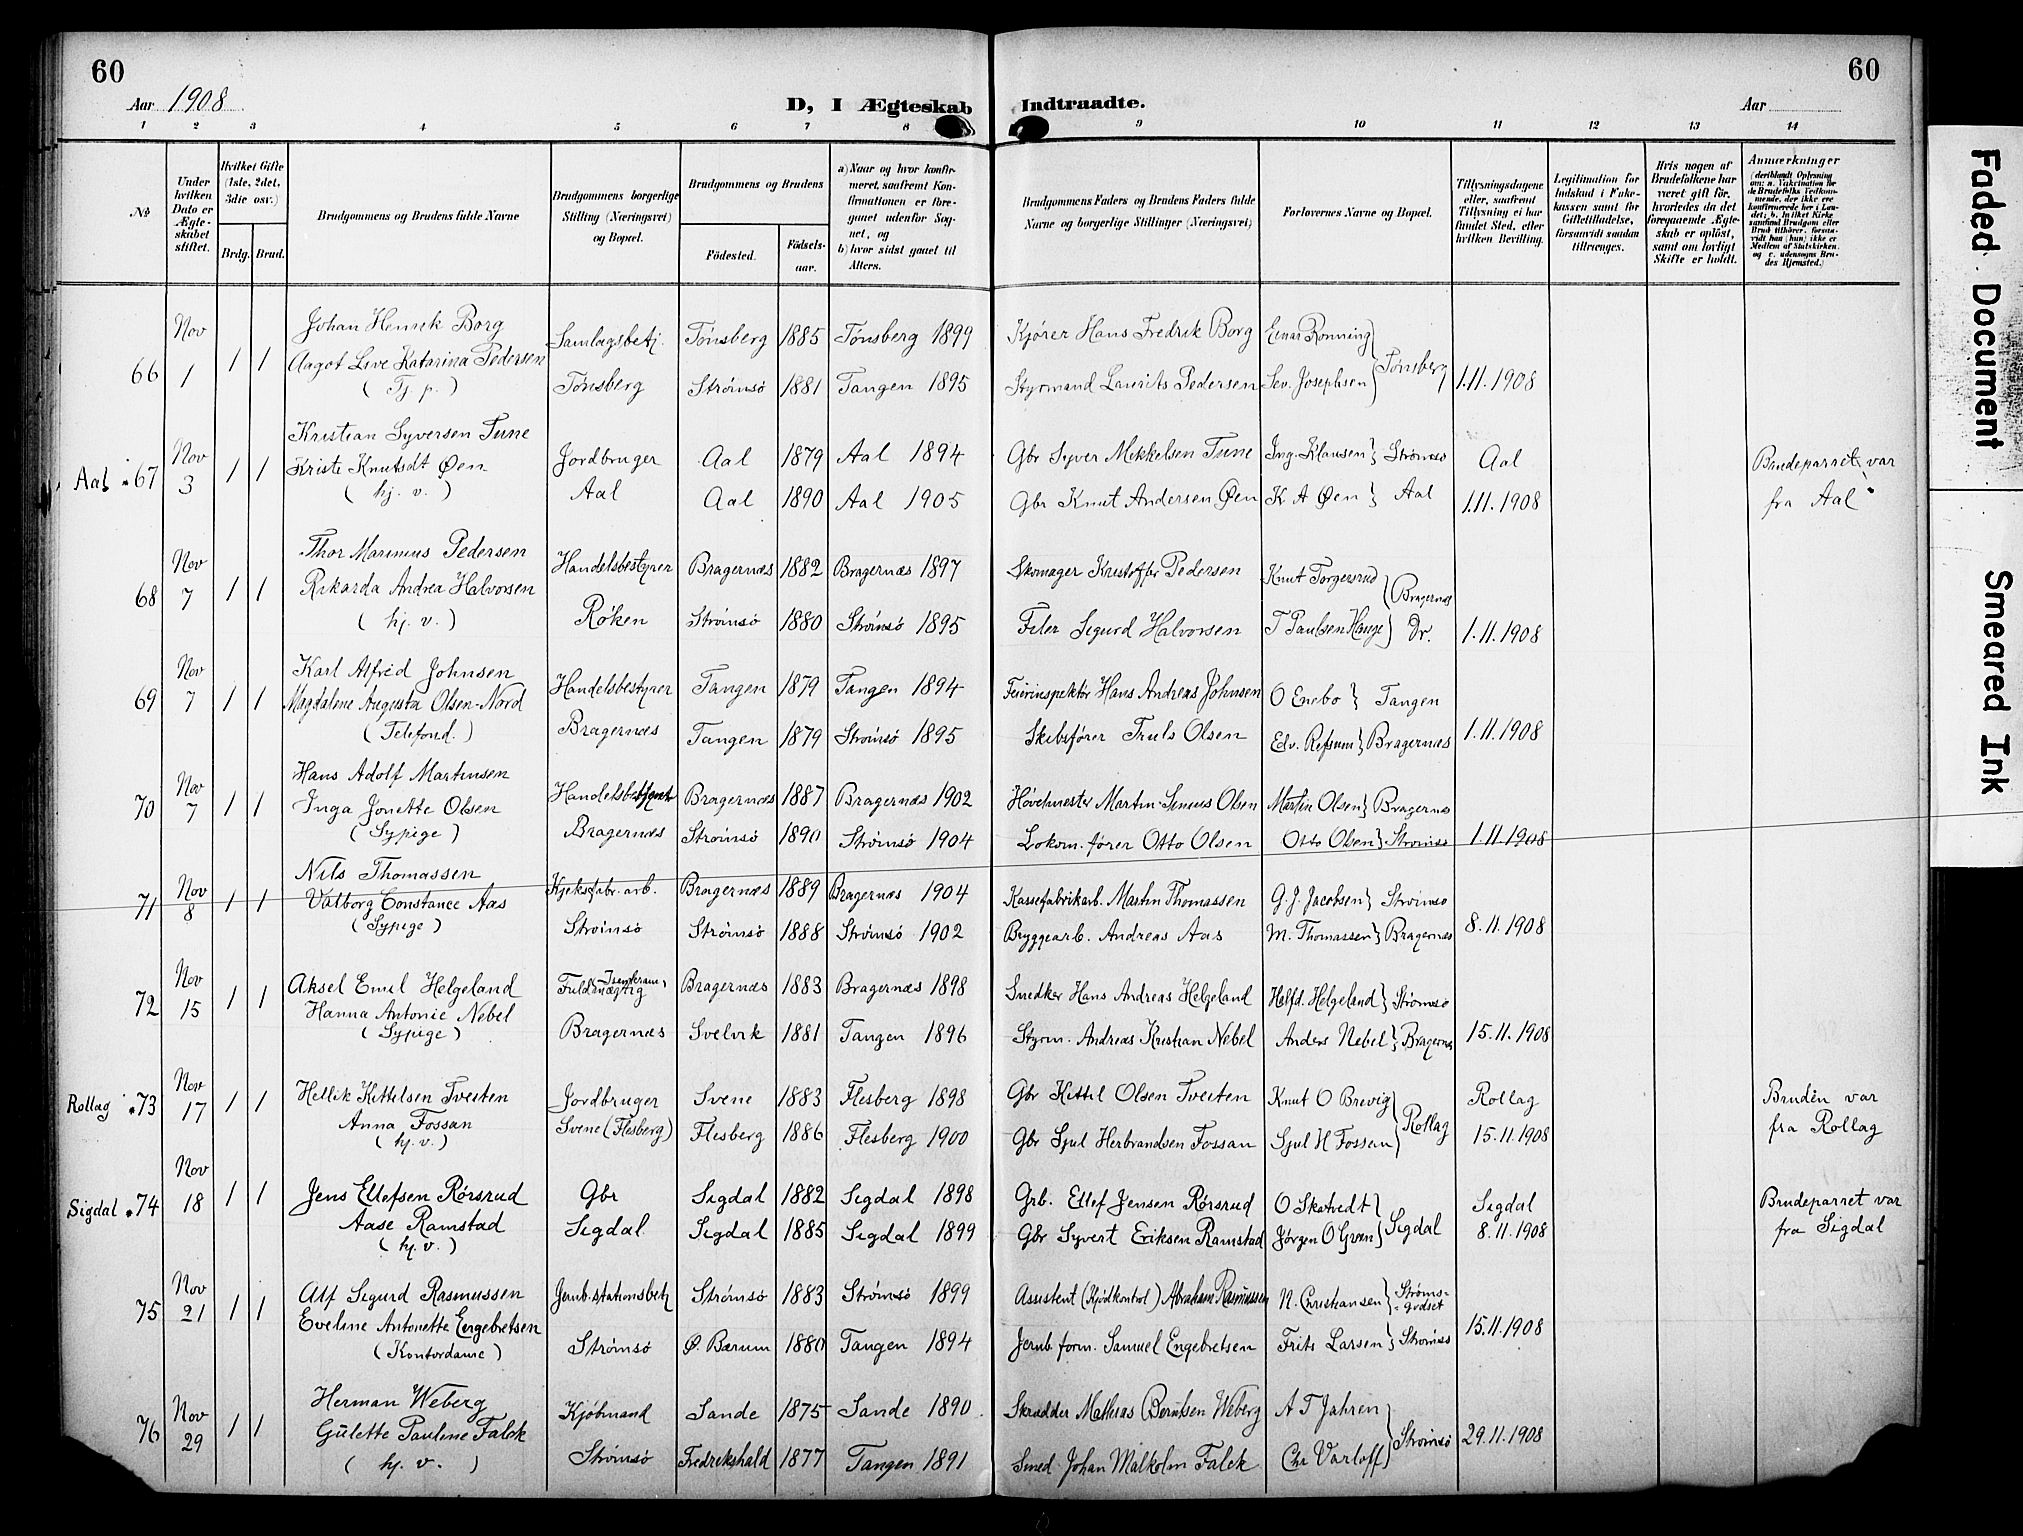 60
60
Aar 1908
D, I Ægteskab Indtraadte.
Aar
1 2 3 4 5 6 7 8 9 10 11 12 13 14
No
Under hvilken Dato er Ægteskabet stiftet.
Hvilket Gifte (1ste, 2det, 3die osv.)
Brdg. Brud.
Brudgommens og Brudens fulde Navne
Brudgommens borgerlige Stilling (Næringsvei) og Bopæl.
Brudgommens og Brudens
Fødested.
Fødselsaar.
a) Naar og hvor konfirmeret, saafremt Konfirmationen er foregaaet udenfor Sognet, og
b) hvor sidst gaaet til Alters.
Brudgommens Faders og Brudens Faders fulde Navne og borgerlige Stillinger (Næringsvei)
Forlovernes Navne og Bopæl.
Tillysningsdagene eller, saafremt Tillysning ei har fundet Sted, efter hvilken Bevilling.
Legitimation for Indskud i Enkekassen samt for Giftetilladelse, forsaavidt saadan tiltrænges.
Hvis nogen af Brudefolkene har været gift før, hvorledes da det foregaaende Ægteskab er opløst, samt om lovligt Skifte er holdt.
Anmærkninger
66 Nov 1 1 1 Johan Henrik Borg Samlagsbetj. Tønsberg 1885 Tønsberg 1899 Kjører Hans Fredrik Borg Einar Rønning } Tønsberg
Aagot Live Katarina Pedersen (Tj. p.) Tønsberg Strømsø 1881 Tangen 1895 Styrmand Laurits Pedersen Sev. Josephsen 1.11.1908
Aal 67 Nov 3 1 1 Kristian Syversen Tune Jordbruger Aal 1879 Aal 1894 Gbr Syver Mikkelsen Tune Ing. Klausen } Strømsø Aal Brudeparret var
Kristi Knutsdt Øen (hj. v.) Aal Aal 1890 Aal 1905 Gbr Knut Andersen Øen K A Øen } Aal 1.11.1908 fra Aal
68 Nov 7 1 1 Thor Marinius Pedersen Handelsbestyrer Bragernæs 1882 Bragernæs 1897 Skomager Kristoffer Pedersen Knut Torgersrud } Bragernæs
Rikarda Andrea Halvorsen (hj. v.) Røken Strømsø 1880 Strømsø 1895 Feler Sigurd Halvorsen T Paulsen Hauge } Dr. 1.11.1908
69 Nov 7 1 1 Karl Alfred Johnsen Handelsbestyrer Tangen 1879 Tangen 1894 Feierinspektør Hans Andreas Johnsen O Enebo } Tangen
Magdalene Augusta Olsen-Nord (Telefond.) Bragernæs Tangen 1879 Strømsø 1895 Skibsfører Truls Olsen Edv. Refsum } Bragernæs 1.11.1908
70 Nov 7 1 1 Hans Adolf Martinsen Bragernæs 1887 Bragernæs 1902 Hovedmester Martin Olsen Martin Olsen } Bragernæs
Inga Jonette Olsen (Sypige) Bragernæs Strømsø 1890 Strømsø 1904 Lokom.fører Otto Olsen Otto Olsen } Strømsø 1.11.1908
71 Nov 8 1 1 Nils Thomassen Kjeksfabr. arb. Bragernæs 1889 Bragernæs 1904 Kassefabrikarb. Martin Thomassen G. J. Jacobsen } Strømsø
Valborg Constance Aas (Sypige) Strømsø Strømsø 1888 Strømsø 1902 Bryggearb. Andreas Aas M. Thomassen } Bragernæs 8.11.1908
72 Nov 15 1 1 Aksel Emil Helgeland Fuldmægtig Bragernæs 1883 Bragernæs 1898 Snedker Hans Andreas Helgeland Halfd. Helgeland } Strømsø
Hanna Antonie Nebel (Sypige) Bragernæs Svelvik 1881 Tangen 1896 Styrm. Andreas Kristian Nebel Anders Nebel } Bragernæs 15.11.1908
Rollag 73 Nov 17 1 1 Hellik Kittilsen Tveiten Jordbruger Svene 1883 Flesberg 1898 Gbr Kittil Olsen Tveiten Knut O Brevig } Rollag Rollag Bruden var
Anna Fossan (hj. v.) Svene (Flesberg) Flesberg 1886 Flesberg 1900 Gbr Sjul Herbrandsen Fossan Sjul H Fossan 15.11.1908 fra Rollag
Sigdal 74 Nov 18 1 1 Jens Ellefsen Rørsrud Gbr Sigdal 1882 Sigdal 1898 Grb. Ellef Jensen Rørsrud O Skatvedt } Sigdal Sigdal Brudeparret var
Aase Ramstad (hj. v.) Sigdal Sigdal 1885 Sigdal 1899 Gbr Syvert Eriksen Ramstad Jørgen O Green 8.11.1908 fra Sigdal
75 Nov 21 1 1 Alf Sigurd Rasmussen Jernb. stationsbetj Strømsø 1883 Strømsø 1899 Assistent (Kjødkontrol) Abraham Rasmussen N. Christiansen } Strømsgodset
Eveline Antonette Engebretsen (Kontordame) Strømsø Ø. Bærum 1880 Tangen 1894 Jernb. form. Samuel Engebretsen Frits Larsen } Strømsø 15.11.1908
76 Nov 29 1 1 Herman Weberg Kjøbmand Sande 1875 Sande 1890 Skrædder Mathias Berntsen Weberg A T Jahren } Strømsø
Gulette Pauline Falck (hj. v.) Strømsø Fredrikshald 1877 Tangen 1891 Smed Johan Malkolm Falck Chr Varloff 29.11.1908
Faded Document
Smeared Ink